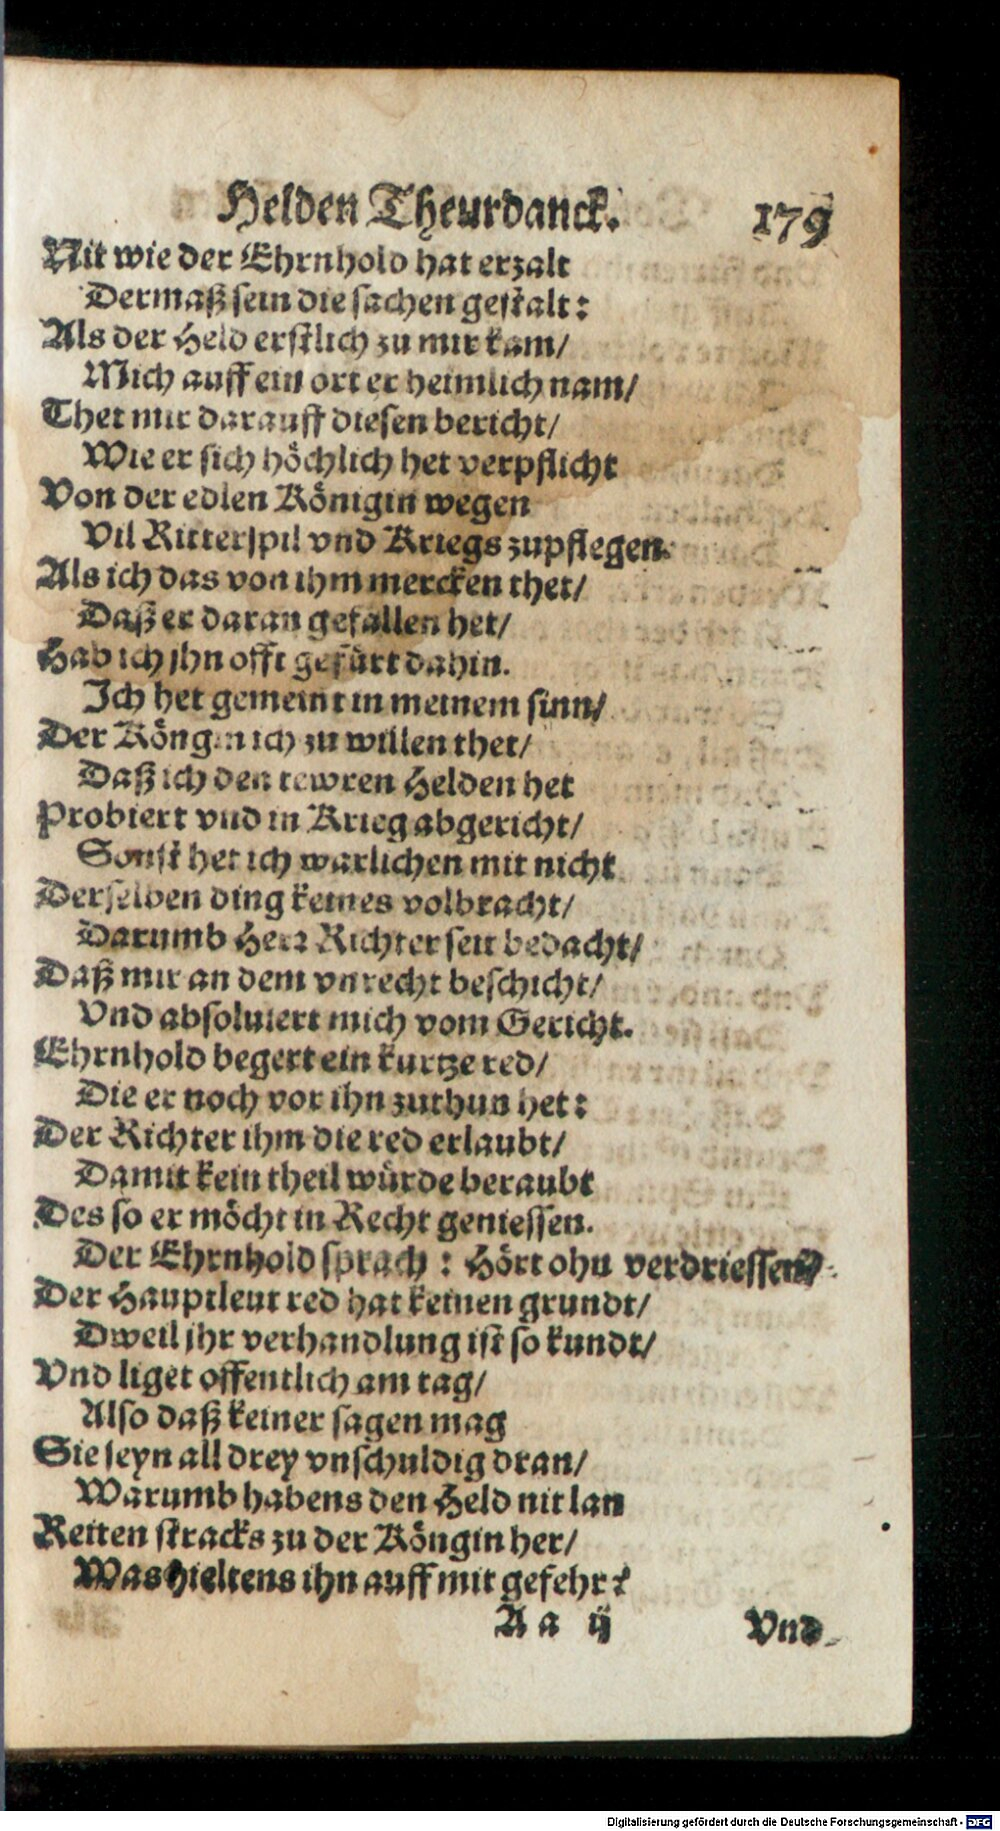 Helden Theurdanck. 179
Nit wie der Ehrnhold hat erzalt
Dermaß sein die sachen gestalt:
Als der Held erstlich zu mir kam/
Mich auff ein ort er heimlich nam/
Thet mir darauff diesen bericht/
Wie er sich höchlich het verpflicht
Von der edlen Königin wegen
Vil Ritterspil vnd Kriegs zupflegen.
Als ich das von ihm mercken thet/
Daß er daran gefallen het/
Hab ich jhn offt gefürt dahin.
Ich het gemeint in meinem sinn/
Der Köngin ich zu willen thet/
Daß ich den tewren Helden het
Probiert vnd in Krieg abgericht/
Sonst het ich warlichen mit nicht
Derselben ding keines volbracht/
Darumb Herr Richter seit bedacht/
Daß mir an dem vnrecht beschicht/
Vnd absoluiert mich vom Gericht.
Ehrnhold begert ein kurtze red/
Die er noch vor ihn zuthun het:
Der Richter ihm die red erlaubt/
Damit kein theil würde beraubt
Des so er möcht in Recht geniessen.
Der Ehrnhold sprach: Hört ohn verdriessen/
Der Hauptleut red hat keinen grundt/
Dweil jhr verhandlung ist so kundt/
Vnd liget offentlich am tag/
Also daß keiner sagen mag
Sie seyn all drey vnschuldig dran/
Warumb habens den Held nit lan
Reiten stracks zu der Köngin her/
Was hieltens ihn auff mit gefehr?
A a ij Vnd
Digitalisierung gefördert durch die Deutsche Forschungsgemeinschaft - DFG